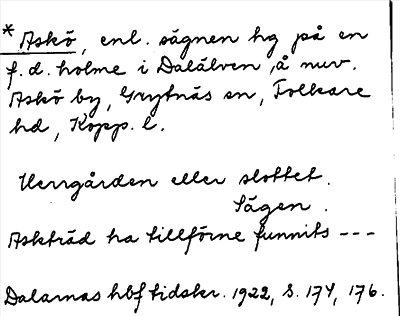 * Askö, enl. sägnen hg på en
f.d. holme i Dalälven, å nuv.
Askö by, Grytnäs sn, Folkare
hd, Kopp. l.
Herrgården eller slottet.
Sägen.
Askträd ha tillförne funnits ---
Dalarnas hbf tidskr. 1922, S. 174, 176.